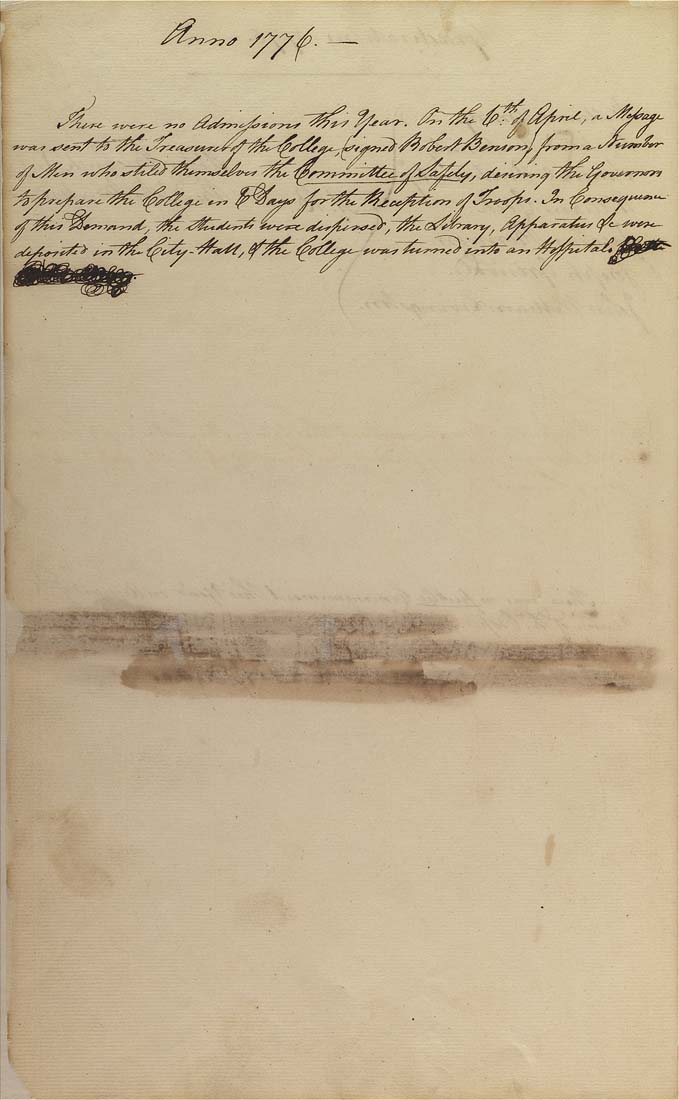 Anno 1776. —
There were no Admissions this Year. On the 6.th of April, a Message
was sent to the Treasurer of the College, signed Robert Benson, from a Number
of Men who stiled themselves the Committee of Safety, desiring the Governors
to prepare the College in 6 Days for the Reception of Troops. In Consequence
of this Demand, the Students were dispersed, the Library, Apparatus &c were
deposited in the City-Hall, & the College was turned into an Hospital.